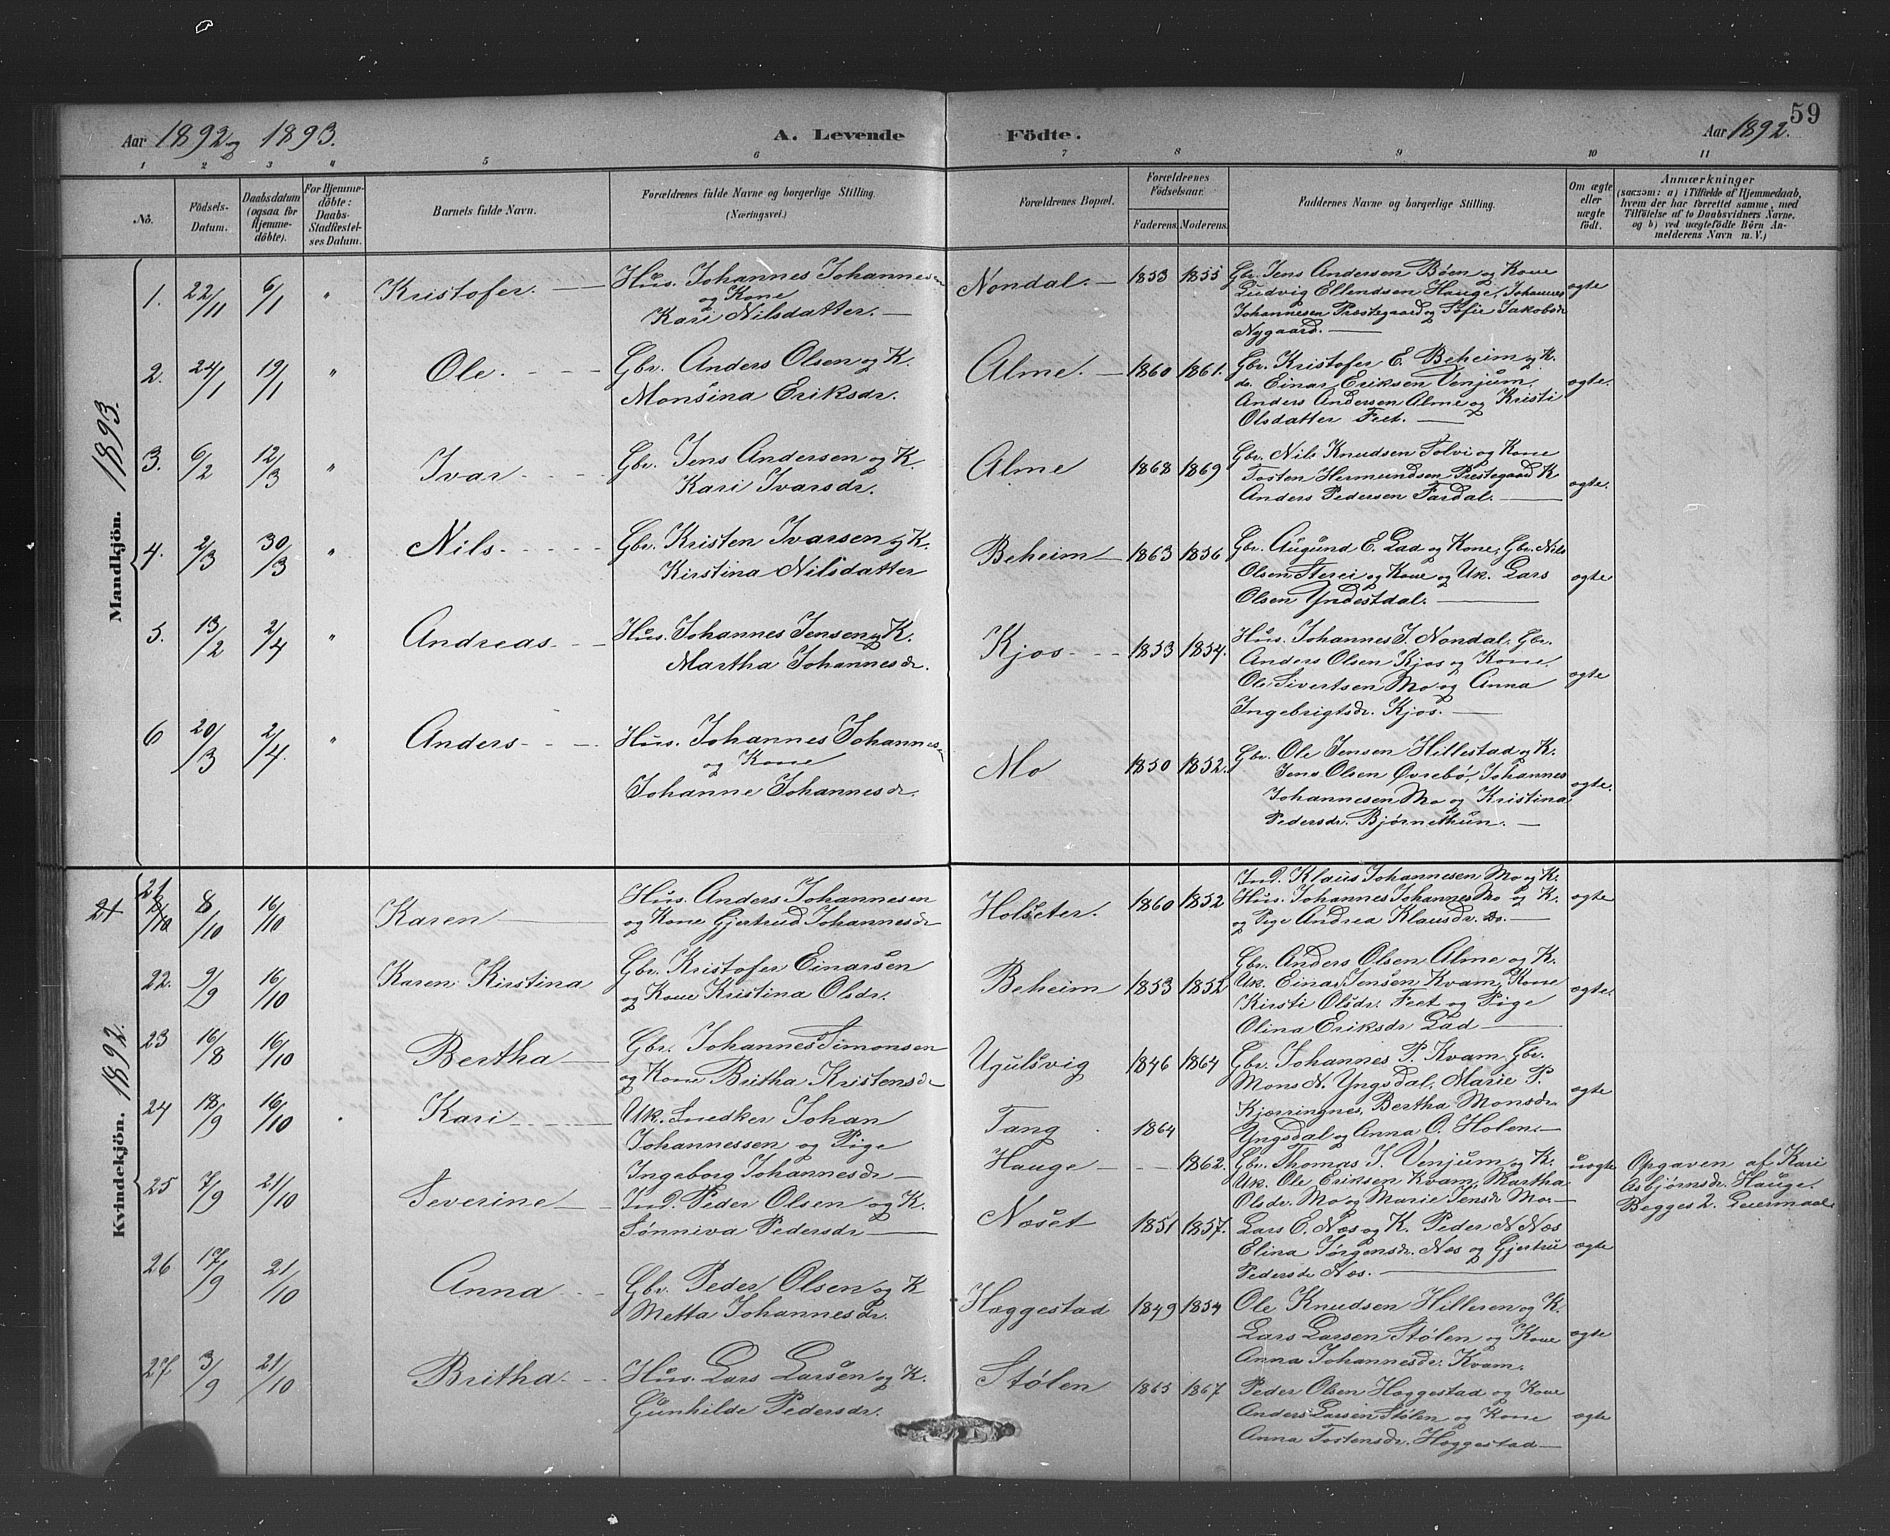 59
Aar 1892 og 1893. A. Levende Födte. Aar 1892.
1 2 3 " 5 6 7 8 9 10 11
No.
Födsels-
Datum.
Daabsdatum
(ogsaa for
Hjemme-
döbte).
For Hjemme-
döbte:
Daabs-
Stadfæstel-
ses Datum.
Barnets fulde Navn.
Forældrenes fulde Navne og borgerlige Stilling.
(Næringsvei.)
Forældrenes Bopæl.
Forældrenes
Födselsaar.
Faderens. Moderens.
Faddernes Navne og borgerlige Stilling.
Om ægte
eller
uægte
födt.
Anmærkninger
(saasom: a) i Tilfælde af Hjemmedaab,
hvem der har forrettet samme, med
Tilföielse af to Daabsvidners Navne,
og b) ved uægtefödte Börn An-
melderens Navn m. V.)
Mandkjön. 1893.
1. 22/11 6/1 " Kristofer.
Hus. Johannes Johannesen
og Kone
Kari Nilsdatter.
Nondal. 1853 1855
Gbr. Jens Andersen Bøen og Kone
Ludvig Ellendsen Hauge, Johannes
Johannesen Præstegaard og Sofie Jakobsdr
Nygaard.
ægte
2. 24/1 19/1 " Ole.
Gbr. Anders Olsen og K.
Monsina Eriksdr.
Alme. 1860 1861.
Gbr. Kristofer E. Beheim og K.
do. Einar Eriksen Venjum,
Anders Andersen Alme og Kristi
Olsdatter Feet.
ægte.
3. 6/2 12/3 " Ivar
Gbr. Jens Andersen og K.
Kari Ivarsdr.
Alme 1868 1869
Gbr. Nils Knudsen Tolvi og Kone
Tosten Hermundsen Prestegaard K
Anders Pedersen Fardal.
ægte.
4. 2/3 30/3 " Nils.
Gbr. Kristen Ivarsen og K.
Kirstina Nilsdatter
Beheim 1863 1856
Gbr. Augund E. Lad og Kone, Gbr. Nils
Olsen Sterei og Kone og Uk. Lars
Olsen Yndestdal.
ægte
5. 13/2 2/4 " Andreas.
Hus. Johannes Jensen og K.
Martha Johannesdr.
Kjos 1853 1854.
Hus. Johannes J. Nondal, Gbr.
Anders Olsen Kjos og Kone
Ole Sivertsen Mo og Anna
Ingebrigtsdr. Kjos.
ægte
6 20/3 2/4. " Anders.
Hus. Johannes Johannesen
og Kone
Johanne Johannesdr.
Mo 1850 1852.
Gbr. Ole Jensen Hillestad og K.
Jens Olsen Øvrebø, Johannes
Johannesen Mo og Kristina
Pedersdr. Bjørnethun.
ægte.
Kvindekjön. 1892.
21 8/10 16/10 Karen
Hus. Anders Johannesen
og Kone Gjertrud Johannesdr
Holseter. 1860 1852
Ind. Klaus Johannesen Mo og K.
Hus. Johannes Johannes Mo og K.
og Pige Andrea Klausdr. do.
ægte
22. 9/9 16/10 Karen Kirstina
Gbr. Kristofer Einarsen
og Kone Kristina Olsdr.
Beheim 1853 1852
Gbr. Anders Olsen Alme og K.
Uk. Einar Jensen Kvam, Kone
Kirsti Olsdr. Feet og Pige
Olina Eriksdr Lad
ægte.
23 16/8 16/10 Bertha
Gbr. Johannes Simonsen
og Kone Britha Kristensdr
Ugulsvig 1846 1864
Gbr. Johannes P. Kvam, Gbr.
Mons N. Yngsdal, Marie P.
Kjærringnes, Bertha Monsdr
Yngsdal og Anna O. Holen.
ægte
24 18/9 16/10 Kari
Uk. Snedker Johan
Johannessen og Pige
Ingeborg Johannesdr
Tang 1864
Hauge 1862.
Gbr. Thomas J. Venjum og K.
Uk. Ole Eriksen Kvam, Martha
Olsdr. Mo og Marie Jensdr Mo.
uægte
Opgaven af Kari
Asbjørnsdr. Hauge.
Begges 2. Leiermaal
25 7/9 21/10 Severine
Ind. Peder Olsen og K.
Sønniva Pedersdr
Næset 1851 1857.
Lars E. Næs og K. Peder N Næs
Elina Jørgensdr. Næs og Gjertru
Pedersdr Næs.
ægte
26 17/9 21/10 Anna
Gbr. Peder Olsen og K
Metta Johannesdr.
Hæggestad 1849 1854
Ole Knudsen Hilleren og K.
Lars Larsen Stølen og Kone
Anna Johannesdr. Kvam.
ægte
27 3/9 21/10 Britha
Hus. Lars Larsen og K.
Gunhilde Pedersdr.
Stølen 1865 1867
Peder Olsen Hæggestad og Kone
Anders Larsen Stølen og Kone
Anna Tostensdr. Hæggestad
ægte